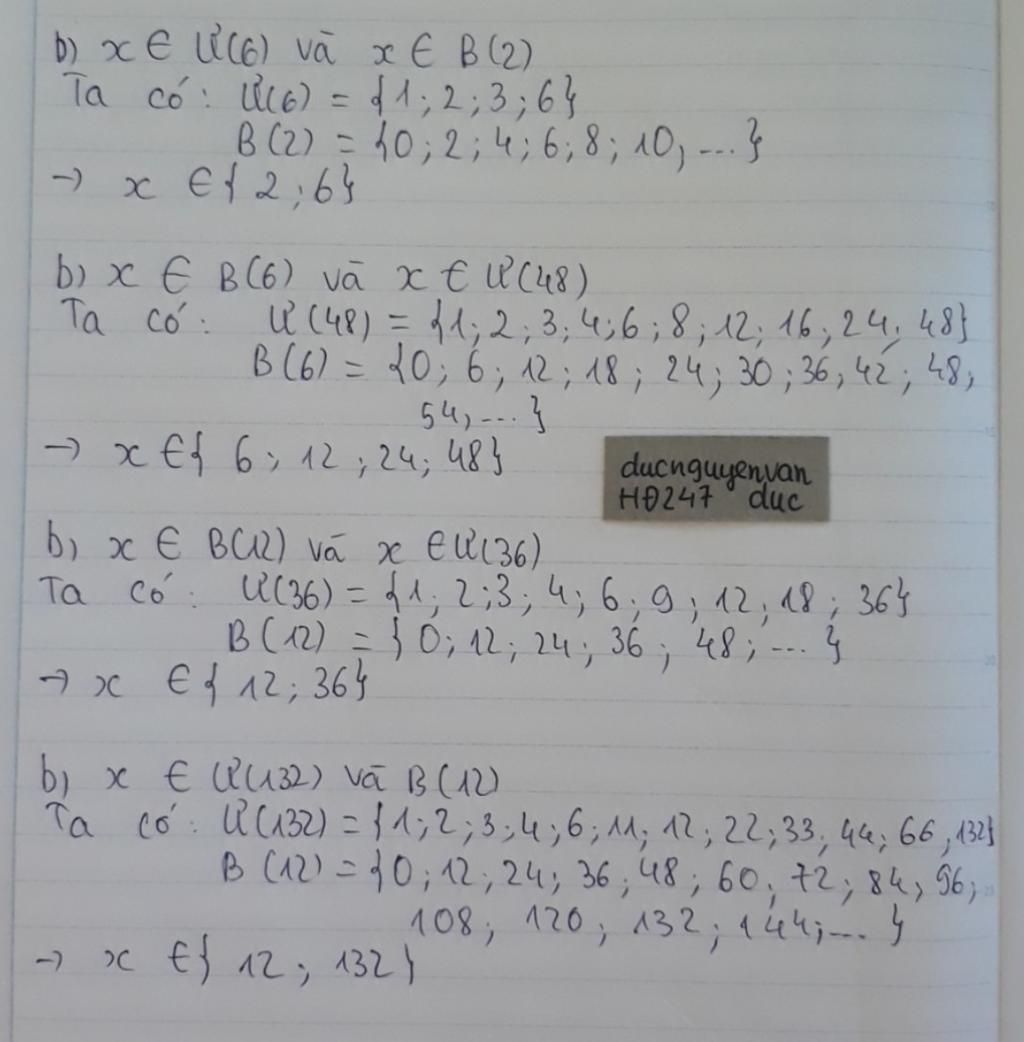 b) x ∈ Ư(6) và x ∈ B(2)
Ta có: Ư(6) = {1; 2; 3; 6}
B(2) = {0; 2; 4; 6; 8; 10, ...}
→ x ∈ {2; 6}
b) x ∈ B(6) và x ∈ Ư(48)
Ta có: Ư(48) = {1; 2; 3; 4; 6; 8; 12; 16; 24; 48}
B(6) = {0; 6; 12; 18; 24; 30; 36; 42; 48;
54, ...}
→ x ∈ {6; 12; 24; 48}
ducnguyenvan
HĐ247 duc
b) x ∈ B(12) và x ∈ Ư(36)
Ta có: Ư(36) = {1; 2; 3; 4; 6; 9; 12; 18; 36}
B(12) = {0; 12; 24; 36; 48; ...}
→ x ∈ {12; 36}
b) x ∈ Ư(132) và B(12)
Ta có: Ư(132) = {1; 2; 3; 4; 6; 11; 12; 22; 33; 44; 66; 132}
B(12) = {0; 12; 24; 36; 48; 60; 72; 84; 96;
108; 120; 132; 144; ...}
→ x ∈ {12; 132}